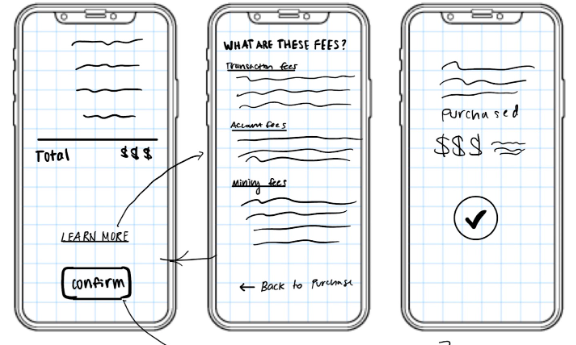 Total $$$
LEARN MORE
confirm
WHAT ARE THESE FEES?
Transaction fees
Account fees
Mining fees
← Back to Purchase
Purchased
$$$